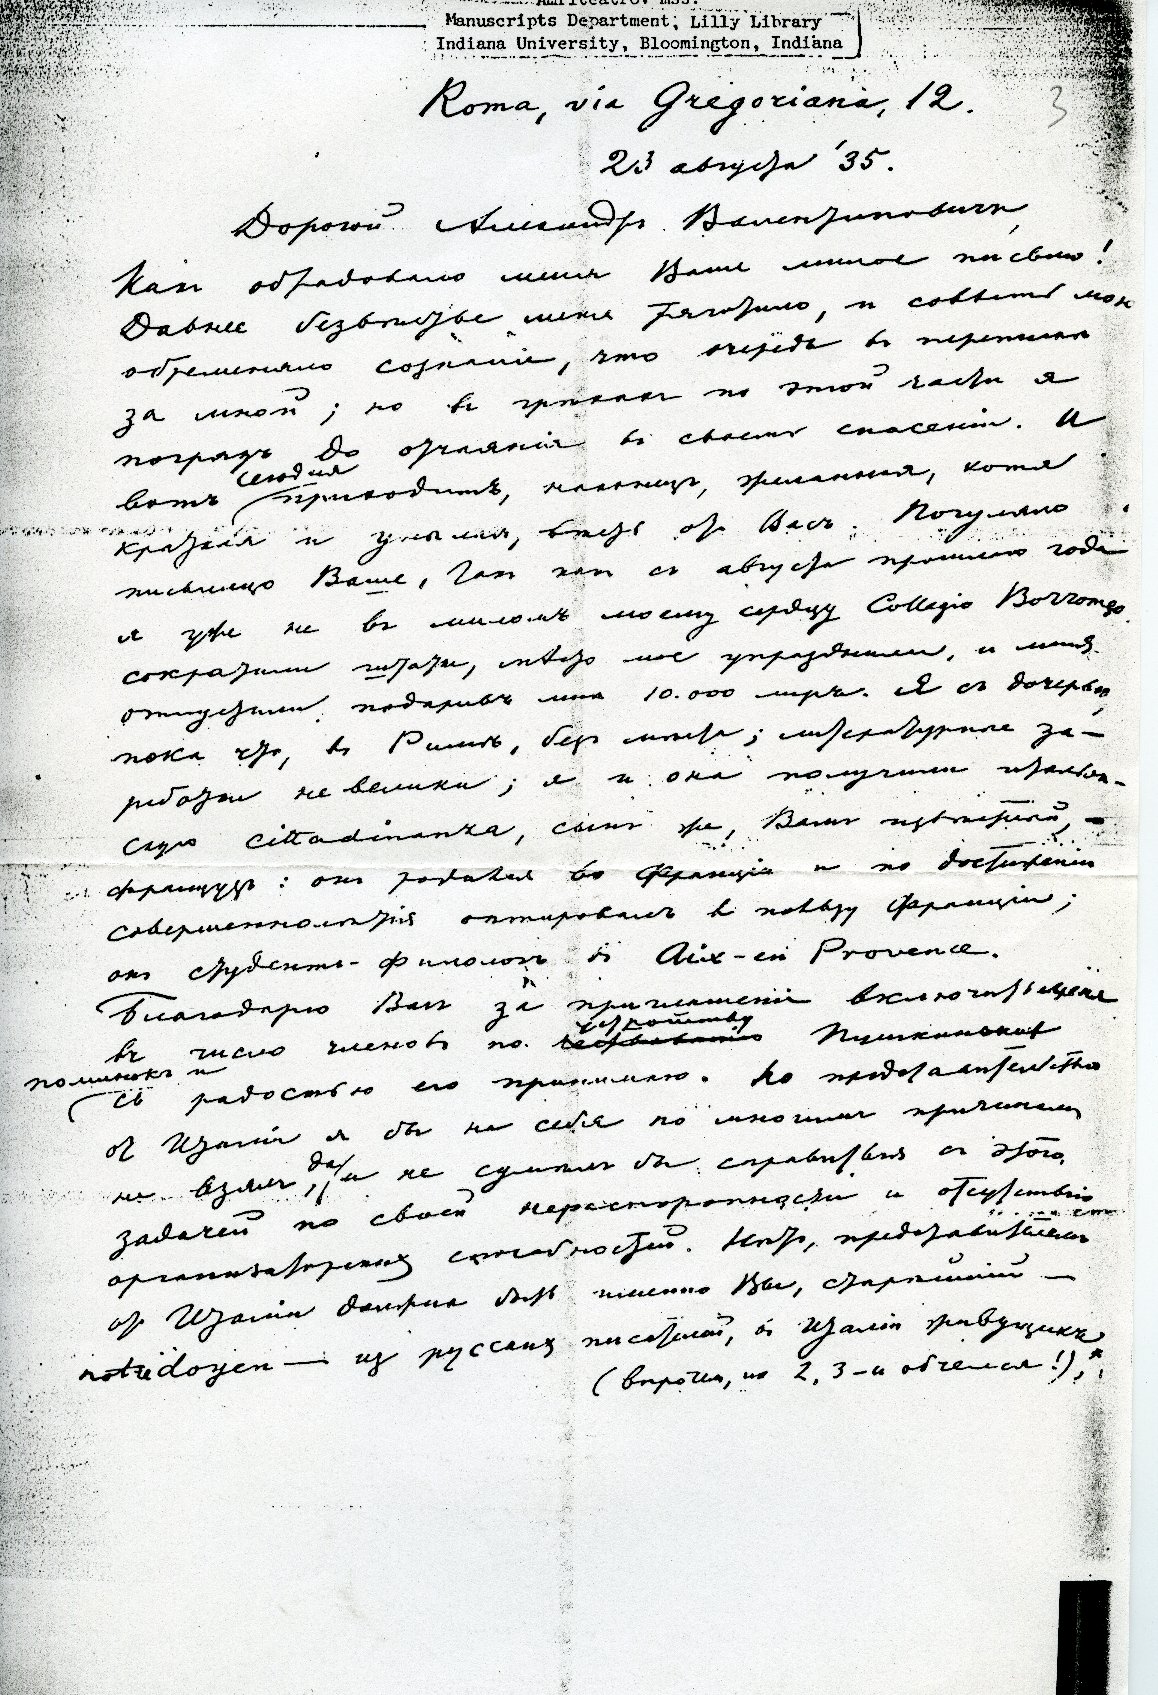 Amfiteatrov mss.
Manuscripts Department, Lilly Library
Indiana University, Bloomington, Indiana
3
Roma, via Gregoriana, 12.
23 августа '35.
Дорогой Александръ Валентиновичъ,
Какъ обрадовало меня Ваше милое письмо!
Давнее безвѣстье меня тяготило, и совѣсть мою
обременяло сознаніе, что очередь въ перепискѣ
за мной; но въ грѣхахъ по этой части я
погрязъ до отчаянія въ своемъ спасеніи. И
вотъ сегодня приходитъ, наконецъ, желанная, хотя
краткая и унылая, вѣсть отъ Васъ. Погуляло
письмецо Ваше, такъ какъ съ августа прошлаго года
я уже не въ миломъ моему сердцу Collegio Borromeo:
сократили штаты, мѣсто мое упразднили, и меня
отпустили, подаривъ мнѣ 10.000 лиръ. Я съ дочерью,
пока что, въ Римѣ, безъ мѣста; литературные за-
работки не велики; я и она получили итальян-
скую cittadinanza, сынъ же, Вамъ извѣстный, –
французъ: онъ родился во Франціи и по достиженіи
совершеннолѣтія оптировалъ въ пользу Франціи;
онъ студентъ-филологъ въ Aix-en Provence.
Благодарю Васъ за приглашеніе включиться
въ число членовъ по устройству Пушкинскихъ
поминокъ и
съ радостью его принимаю. Но представительства
отъ Италіи я бы на себя по многимъ причинамъ
не взялъ, да и не сумѣлъ бы справиться съ этою
задачей по своей нерасторопности и отсутствію
организаторскихъ способностей. Нѣтъ, представителемъ
отъ Италіи должны быть именно Вы, старѣйшій —
notre doyen — изъ русскихъ писателей, въ Италіи живущихъ
(впрочемъ, их 2, 3 – и обчелся!),